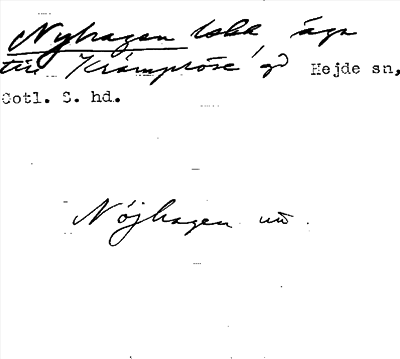 Nyhagen    äga
till Krämplöse gd Hejde sn,
Gotl. S. hd.
Nöjhagen utt.